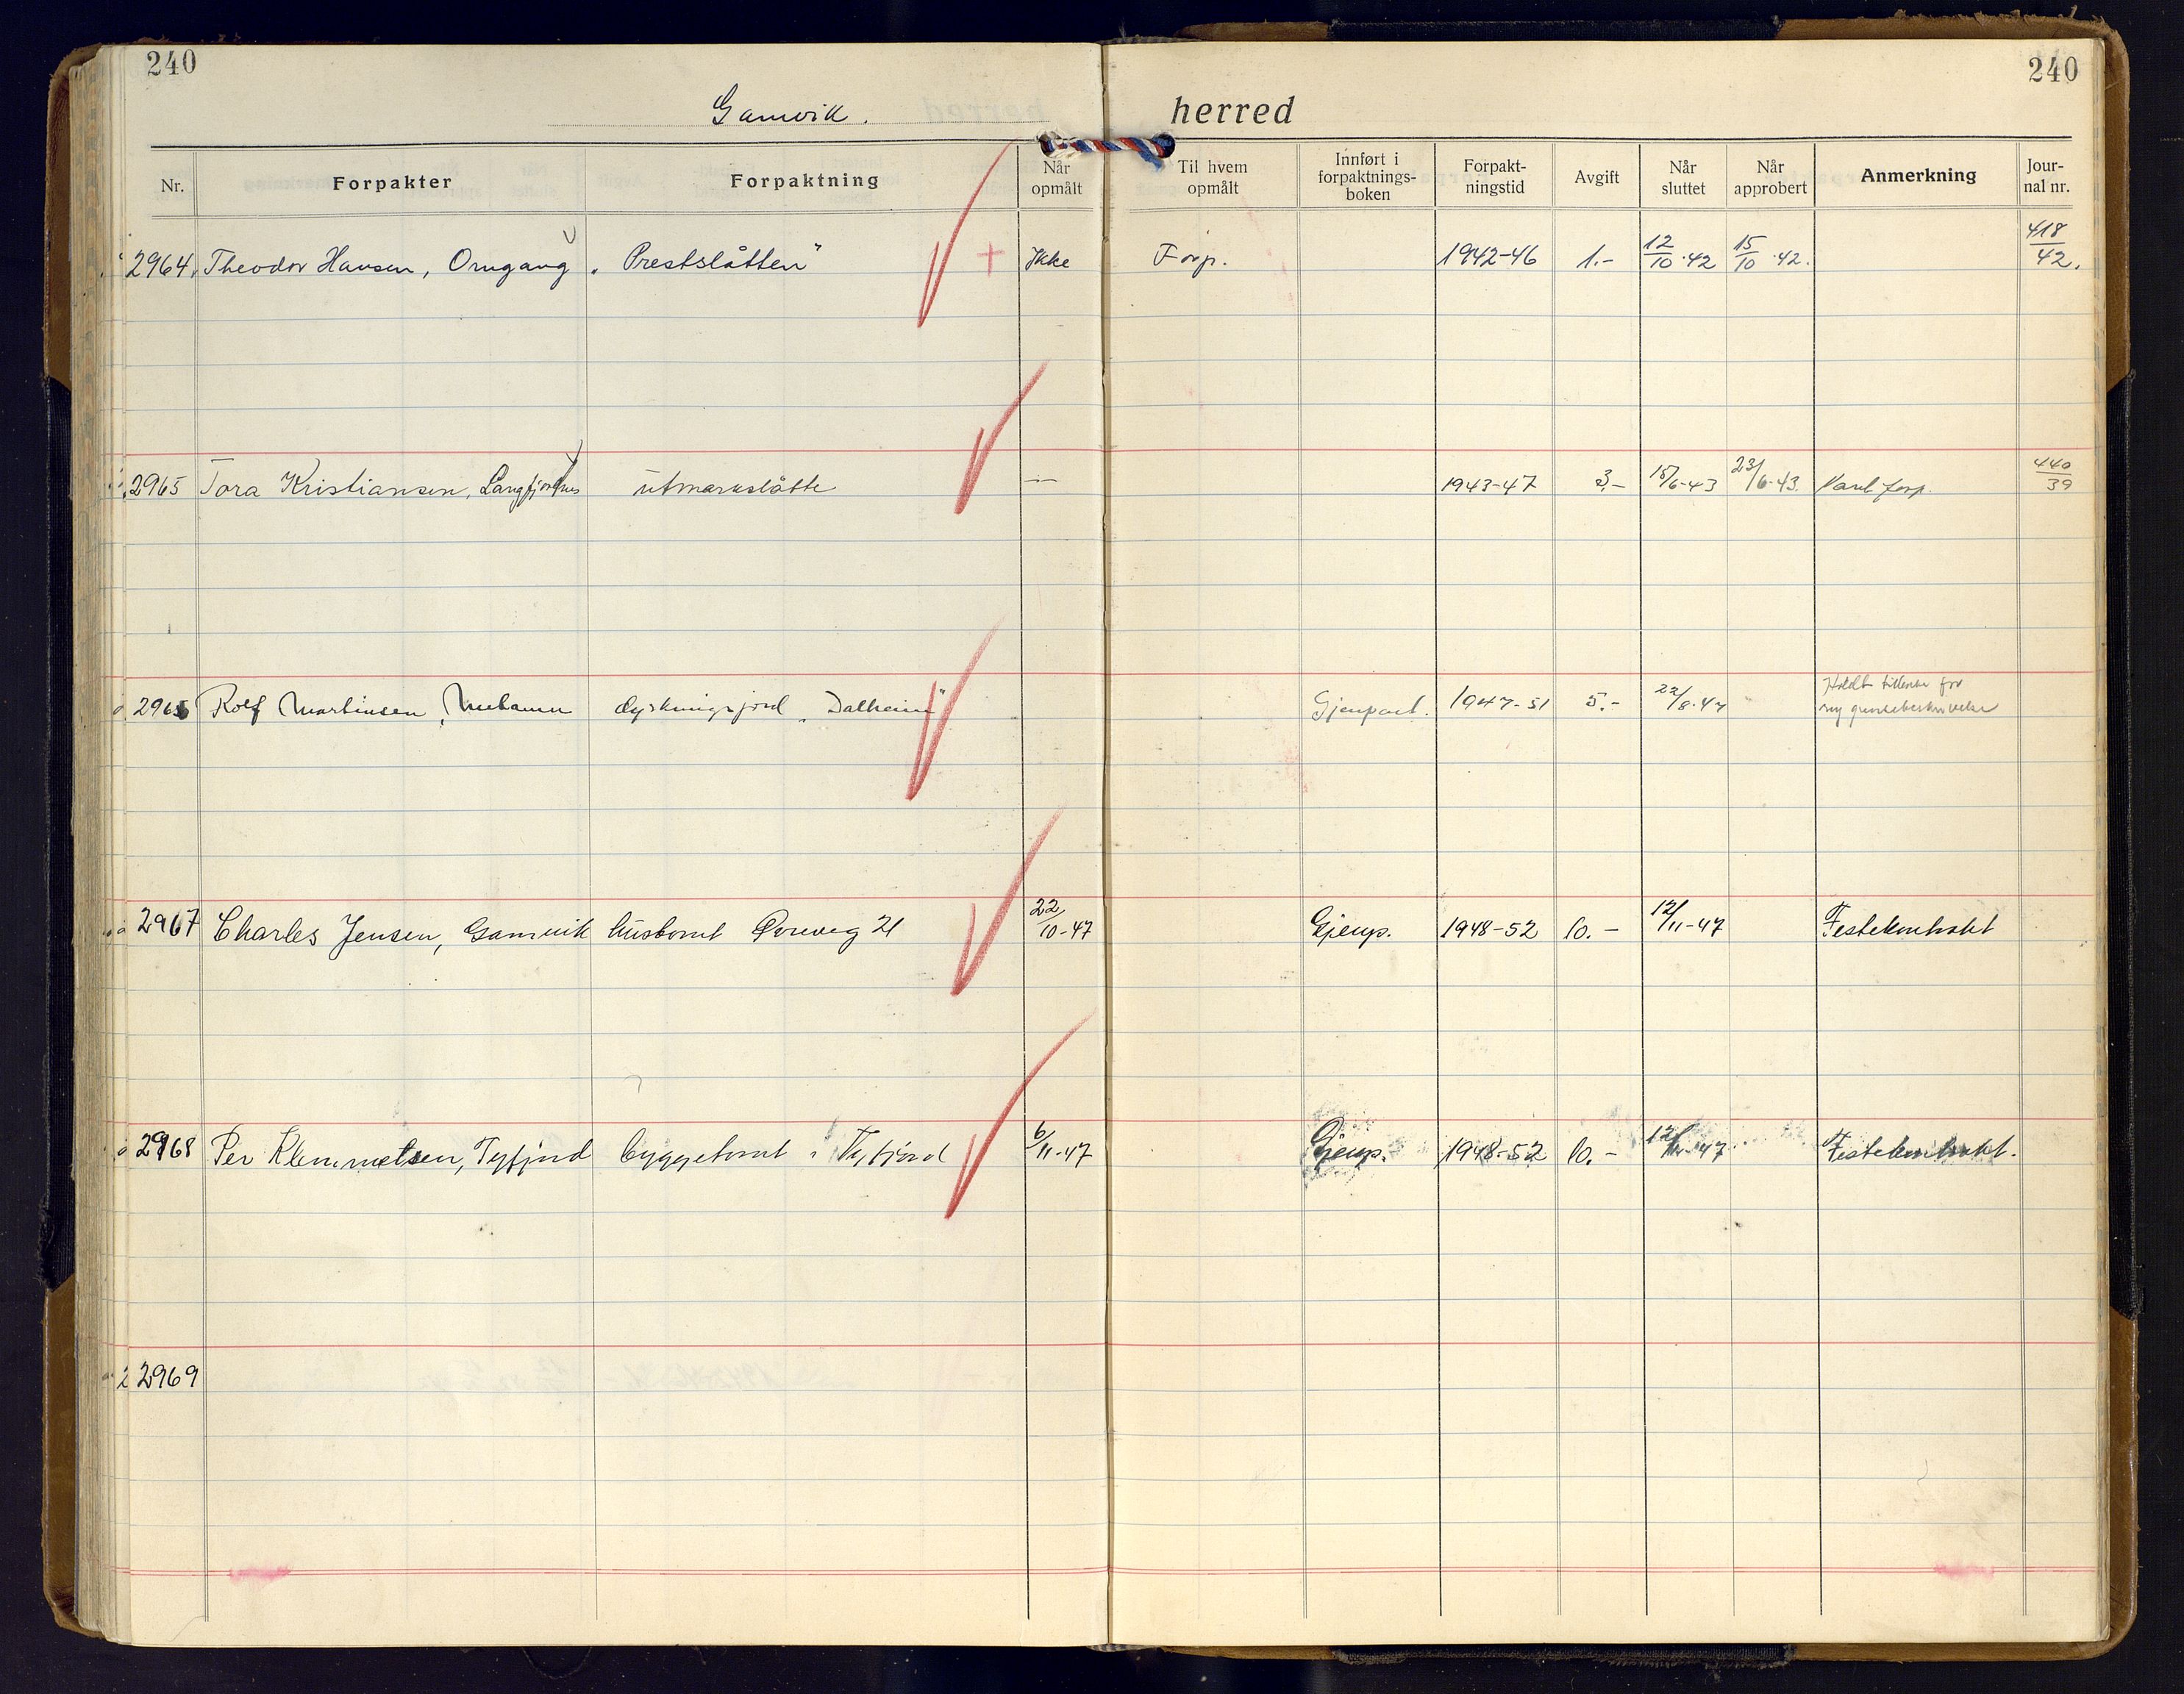 240
240
Gamvik. herred
Nr. Forpakter Forpaktning Når opmålt Til hvem opmålt Innført i forpaktnings-boken Forpakt-ningstid Avgift Når sluttet Når approbert Anmerkning Jour-nal nr.
2964. Theodor Hansen, Omgang „Prestslåtten" + Ikke Forp. 1942-46 1.- 12/10-42 15/10-42. 418/42.
2965 Tora Kristiansen, Langfjordnes utmarkslåtte — 1943-47 3.- 15/6-43 23/6-43. forp. 440/39
2965 Rolf Martinsen, Mehamn dyrkningsjord „Dalheim" Gjenpart. 1947-51 5.- 22/8-47 for
ny grensebeskrivelse
2967 Charles Jensen, Gamvik hustomt Øreveg 21 22/10-47 Gjenp. 1948-52 10.- 12/11-47 Festekontrakt
2968 Per Klemmetsen, Tyfjord byggetomt i Tyfjord 6/11-47 Gjenp. 1948-52 10.- 12/11-47 Festekontrakt.
2969